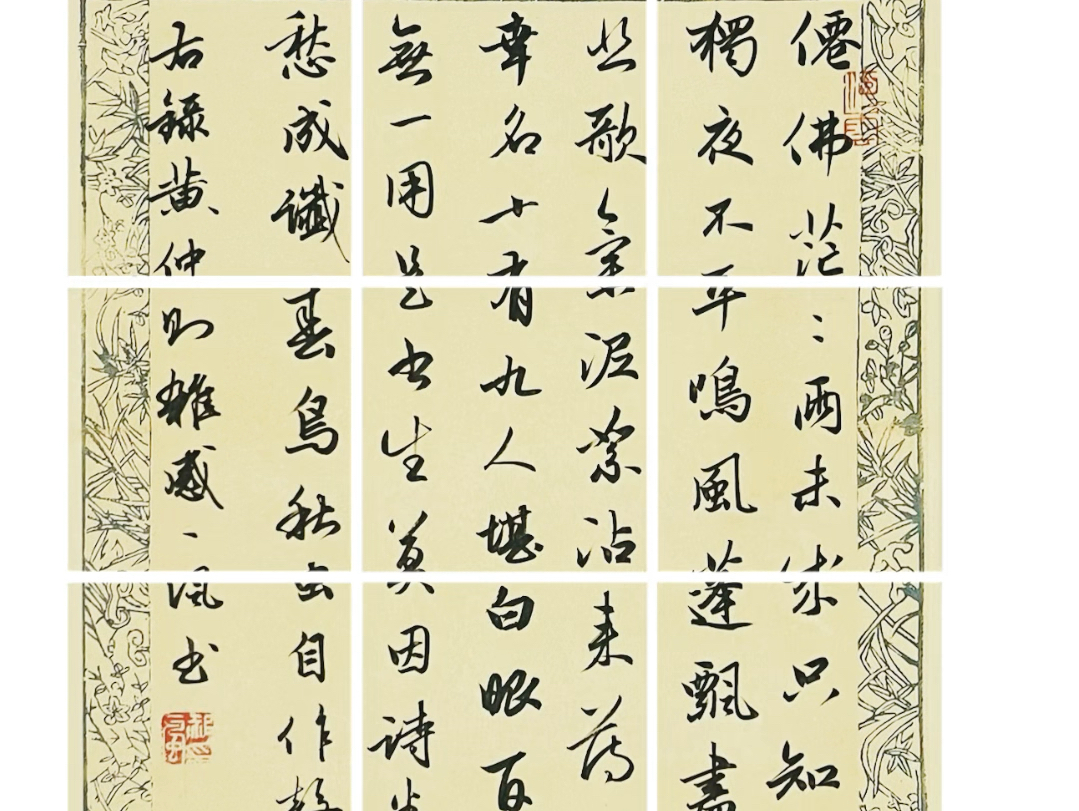 僊佛茫〻兩未成只知
獨夜不平鳴風蓬飄盡
悲歌氣泥絮沾來薄
幸名十有九人堪白眼百
無一用是書生莫因詩卷
愁成讖春鳥秋虫自作聲
右錄黃仲則雜感一風書